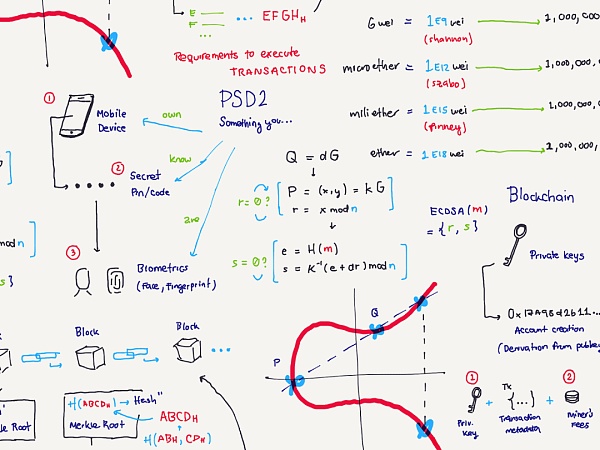 E
F
...
... EFGHH
Requirements to execute
TRANSACTIONS
Gwei = 1E9 wei
(shannon)
microether = 1E12 wei
(szabo)
1,000,000
milliether = 1E15 wei
(finney)
ether = 1E18 wei
1
Mobile
Device
PSD2
Something you...
own
know
are
2
Secret
Pin/Code
3
Biometrics
(Face, Fingerprint)
Q = dG
r = 0?
P = (x,y) = kG
r = x mod n
s = 0?
e = H(m)
s = K⁻¹(e + dr) mod n
ECDSA (m)
= {r, s}
Blockchain
Private keys
Account creation
(Derivation from pubkey
mod n
s}
Block
Block
...
P
Q
H(ABCDH) → Hash"
Merkle Root
ABCDH
H(ABH, CDH)
le Root
1
Priv.
Key
+
Tx
{...}
Transaction
metadata
+
2
miner's
fees